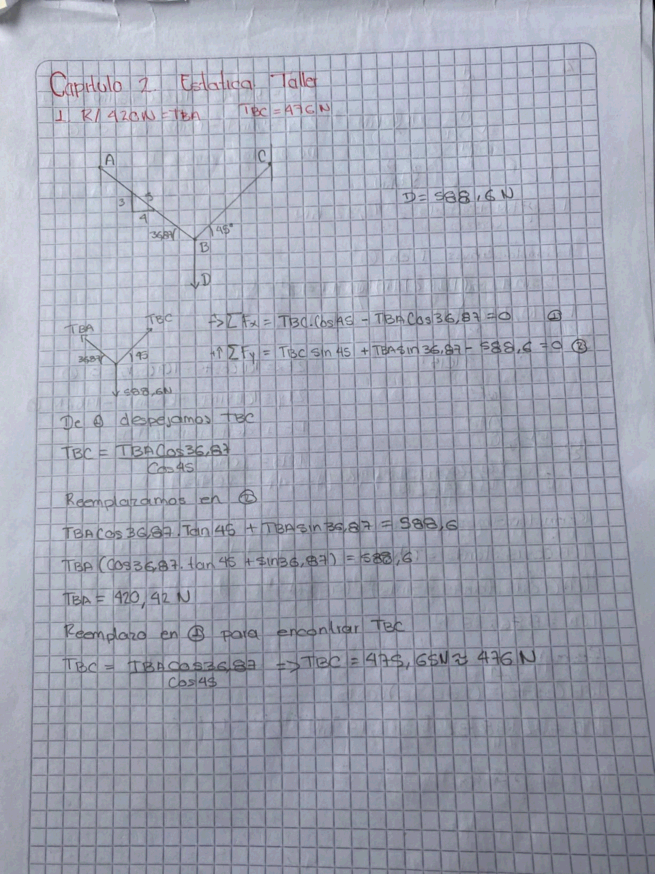 Capitulo 2. Estatica. Taller
1 R/ 420N = TBA TBC = 476N
A
C
3
5
4
D = 588,6 N
36,87
45°
B
D
TBA
TBC
36,87
45
588,6N
→ΣFx = TBC.Cos45 - TBACos36,87 = 0 ①
+↑ΣFy = TBC sin 45 + TBAsin36,87 - 588,6 = 0 ②
De ① despejamos TBC
TBC = TBACos36,87
Cos45
Reemplazamos en ②
TBACos36,87.Tan 45 + TBAsin 36,87 = 588,6
TBA (Cos36,87.tan 45 + sin36,87) = 588,6
TBA = 420,42 N
Reemplazo en ① para encontrar TBC
TBC = TBACos36,87 → TBC = 475,65N ≈ 476 N
Cos45